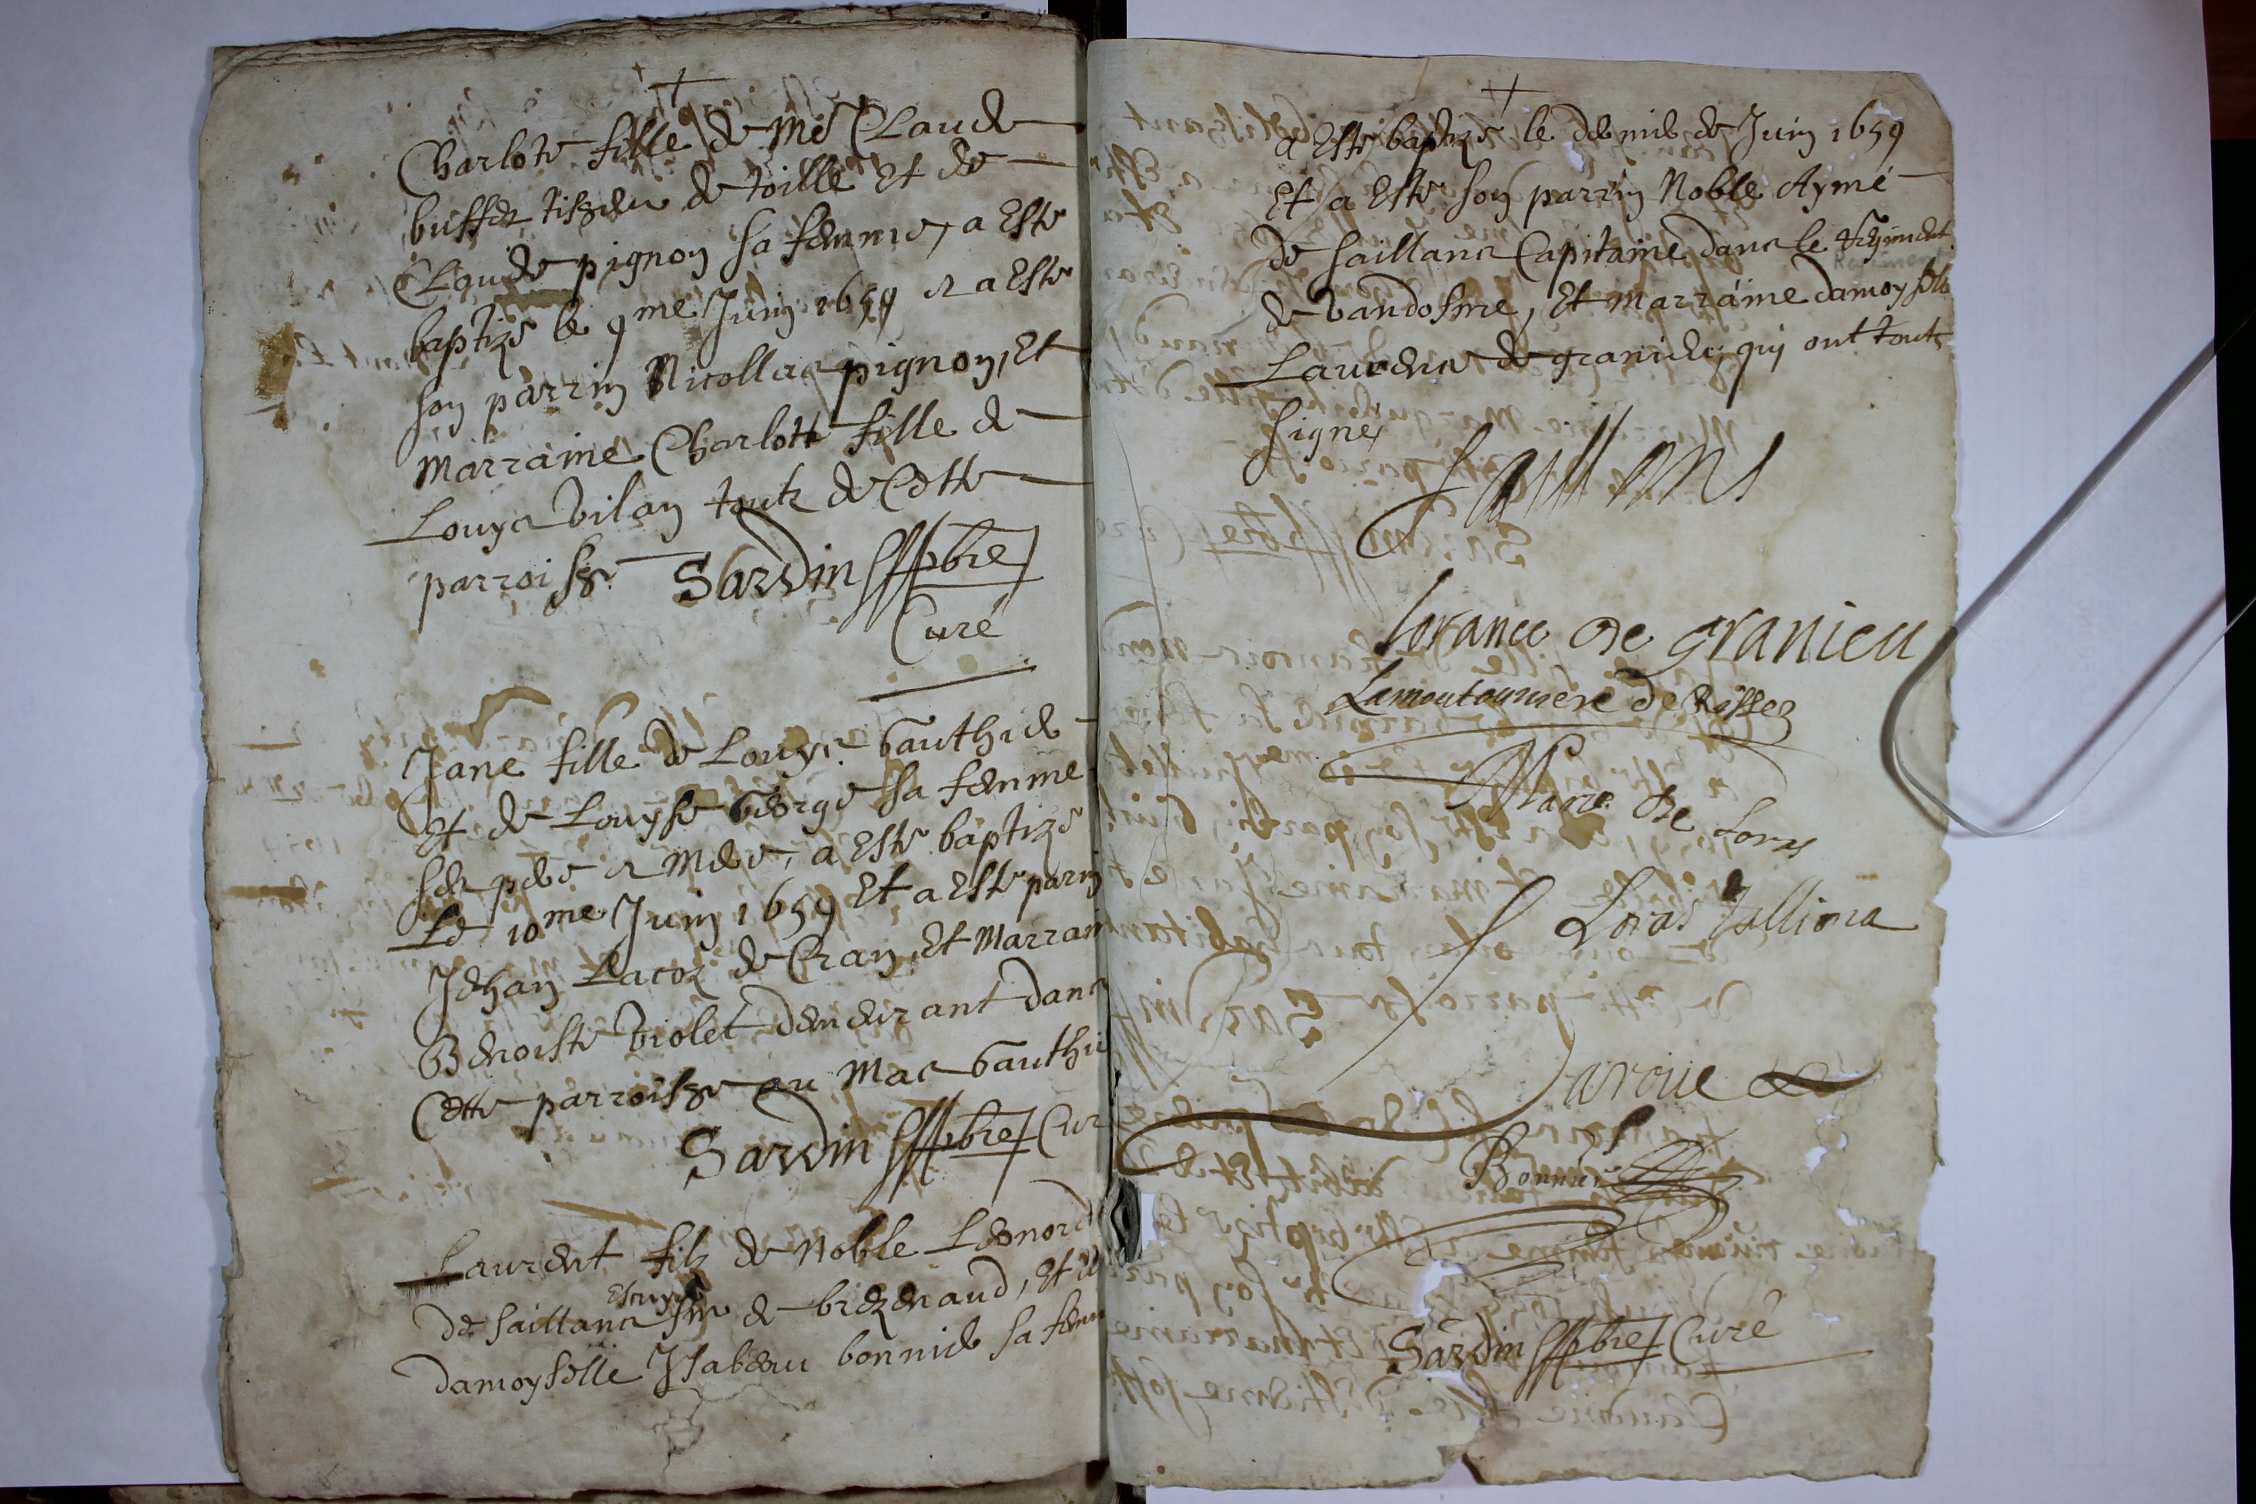 Charlote fille de Me Claude
buffet tisseur de toille et de
Claude pignon sa femme, a esté
baptizé le 9me Juin 1659 et a esté
son parrin Nicollas pignon, Et
Marraine Charlotte fille de
Louys vilan touts de Cette
parroisse Sardin pbre
Curé
Jane fille de Louys Gauthier
et de Louyse George sa femme
ses pere et mere, a esté baptizé
Le 10me Juin 1659 Et a esté parrin
Jehan Lacoz de Cran, Et Marrain
Benoiste violet demeurant dans
Cette parroisse au Mas Gauthie
Sardin pbre Cur
Laurent fils de Noble Leonord
Escuyer
de Saillans sr de brezenaud, et de
damoyselle Ysabeau bonnier sa femm
a esté baptizé le dernier de Juin 1659
Et a esté son parrin Noble Aymé
de Saillans Capitaine dans le Regiment
Regiment
de Vandosme, Et marraine damoyselle
Laurence de granieu, qui ont touts
signé,
Saillans
loranee de granieu
Lamoutonniere de
Marie de Loras
Loras
Laroue
Bonnier
Sardin pbre Curé